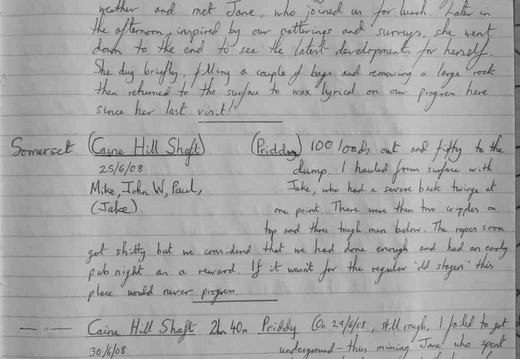 weather and met Jane, who joined us for lunch. Later in
the afternoon, inspired by our patterings and surveys, she went
down to the end to see the latest developments for herself.
She dug briefly, filling a couple of bags and removing a large rock
then returned to the surface to wax lyrical on our progress here
since her last visit!
Somerset (Caine Hill Shaft) (Priddy) 100 loads out and fifty to the
25/6/08 dump. I hauled from surface with
Mike, John W, Paul, Jake, who had a severe back twinge at
(Jake). one point. There were then two cripples on
top and three tough men below. The ropes soon
got shitty but we considered that we had done enough and had an early
pub night as a reward. If it wasn't for the regular 'old stagers' this
place would never progress.
— " — Caine Hill Shaft 2hr 40m Priddy (On 29/6/08, still rough, I failed to get
30/6/08 underground – thus missing Jane who spent